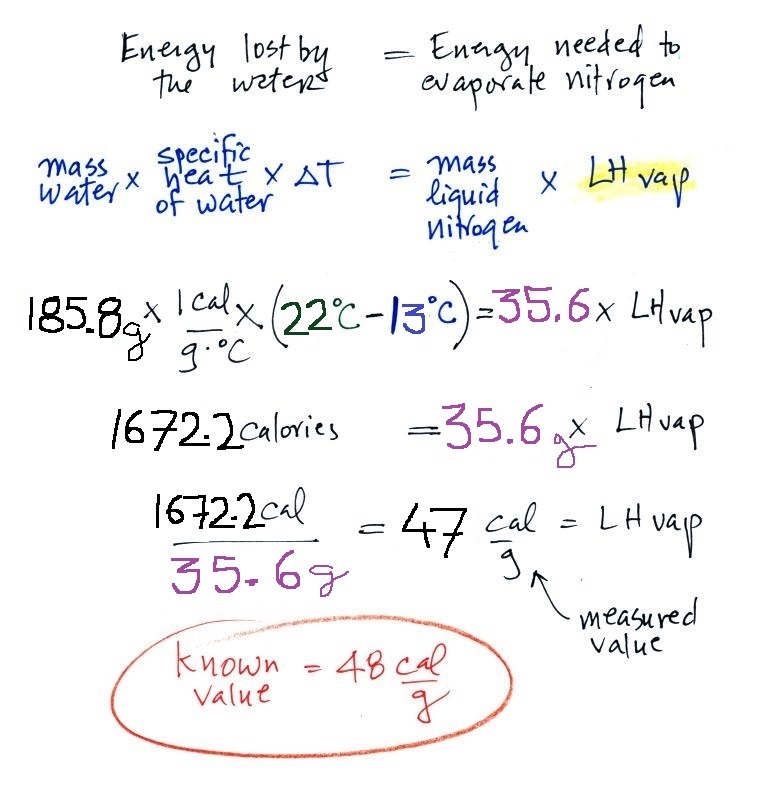 Energy lost by the water = Energy needed to evaporate nitrogen
mass water × specific heat of water × ΔT = mass liquid nitrogen × LH vap
185.8g × 1 cal/g·°C × (22°C - 13°C) = 35.6 × LH vap
1672.2 calories = 35.6 g × LH vap
1672.2 cal / 35.6 g = 47 cal/g = LH vap
measured value
known value = 48 cal/g